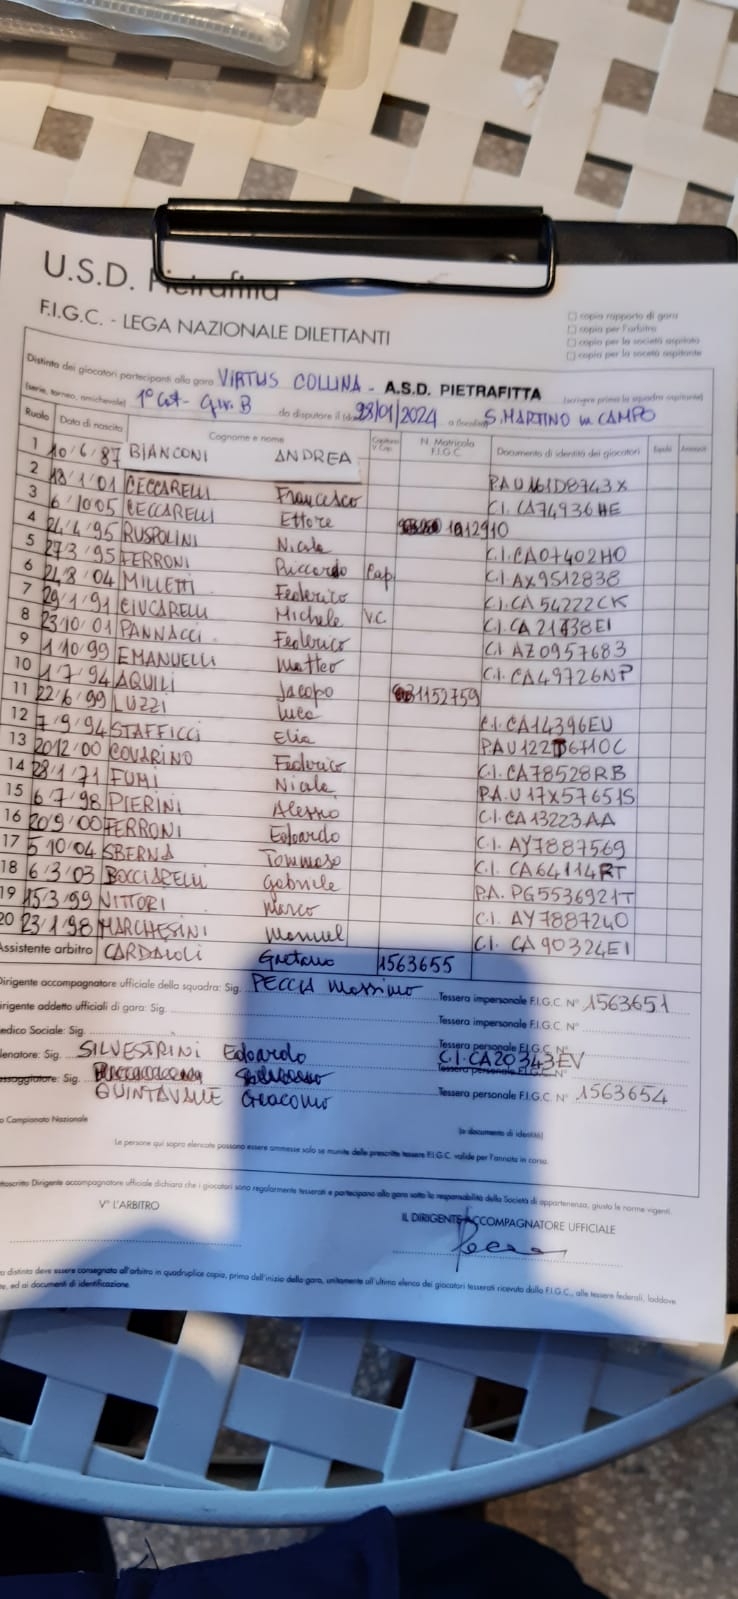 U.S.D. Pietrafitta
F.I.G.C. - LEGA NAZIONALE DILETTANTI
copia rapporto di gara
copia per l'arbitro
copia per la società ospitata
copia per la società ospitante
Distinta dei giocatori partecipanti alla gara VIRTUS COLLINA - A.S.D. PIETRAFITTA (scrivere prima la squadra ospitante)
(serie, torneo, amichevole) 1° Cat - Gir. B da disputare il 28/01/2024 a S. MARTINO in CAMPO
Ruolo Data di nascita Cognome e nome N. Matricola F.I.G.C. Documento di identità dei giocatori
1 10/6/87 BIANCONI ANDREA
2 18/1/01 CECCARELLI Francesco PAU161D8743X
3 6/10/05 CECCARELLI Ettore C.I. CA74936HE
4 24/4/95 RUSPOLINI Nicola 1012910
5 27/3/95 FERRONI Riccardo Cap C.I. CA07402HO
6 24/8/04 MILLETTI Federico C.I. AX9512838
7 29/1/91 CIUCARELLI Michele V.C. C.I. CA 54222CK
8 23/10/01 PANNACCI Federico C.I. CA 21438EI
9 1/10/99 EMANUELLI Matteo C.I. AZ0957683
10 1/7/94 AQUILI Jacopo C.I. CA49726NP
11 22/6/99 LUZZI Luca 1152759
12 7/9/94 STAFFICCI Elia C.I. CA14396EU
13 20/12/00 COVARINO Federico PAU122
14 28/1/71 FUMI Nicola C.I. CA78528RB
15 6/7/98 PIERINI Alessio P.A.U17X5765IS
16 20/9/00 FERRONI Edoardo C.I. CA13223AA
17 5/10/04 SBERNA Tommaso C.I. AY7887569
18 6/3/03 BOCCIARELLI Gabriele C.I. CA64114RT
19 15/3/99 VITTORI Marco P.A. PG5536921T
20 23/1/98 MARCHESINI Manuel C.I. AY7887240
C.I. CA90324EI
Assistente arbitro CARDAIOLI Gaetano 1563655
Dirigente accompagnatore ufficiale della squadra: Sig. PECCIA Massimo Tessera impersonale F.I.G.C. N° 1563651
irigente addetto ufficiali di gara: Sig. Tessera impersonale F.I.G.C. N°
edico Sociale: Sig. Tessera personale F.I.G.C. N°
lenatore: Sig. SILVESTRINI Edoardo C.I. CA20343EV
assaggiatore: Sig. Tessera personale F.I.G.C. N°
QUINTAVALLE Giacomo Tessera personale F.I.G.C. N° 1563654
o Campionato Nazionale (o documento di identità)
Le persone qui sopra elencate possono essere ammesse solo se munite delle prescritte tessere F.I.G.C. valide per l'annata in corso.
ttoscritto Dirigente accompagnatore ufficiale dichiara che i giocatori sono regolarmente tesserati e partecipano alla gara sotto la responsabilità della Società di appartenenza, giusto le norme vigenti.
V° L'ARBITRO IL DIRIGENTE ACCOMPAGNATORE UFFICIALE
a distinta deve essere consegnata all'arbitro in quadruplice copia, prima dell'inizio della gara, unitamente all'ultimo elenco dei giocatori tesserati ricevuto dalla F.I.G.C., alle tessere federali, laddove
e, ed ai documenti di identificazione.